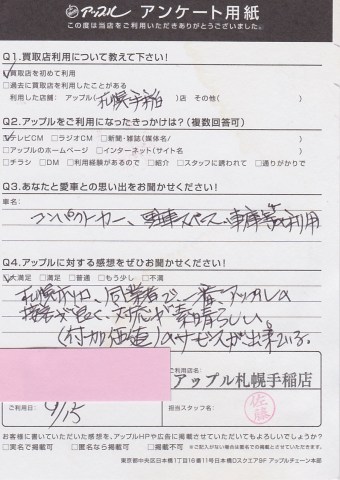 アップル アンケート用紙
この度は当店をご利用いただきありがとうございました。
Q1.買取店利用について教えて下さい!
☑買取店を初めて利用
□過去に買取店を利用したことがある
利用した店舗: アップル(札幌手稲)店 その他( )
Q2.アップルをご利用になったきっかけは?(複数回答可)
☑テレビCM □ラジオCM □新聞・雑誌(媒体名/ )
□アップルのホームページ □インターネット(サイト名 )
□チラシ □DM □利用経験があるので □紹介 □スタッフに誘われて □通りがかりで
Q3.あなたと愛車との思い出をお聞かせください!
車名:
コンパクトカー、駐車スペース、車庫等の利用
Q4.アップルに対する感想をぜひお聞かせください!
☑大満足 □満足 □普通 □もう少し □不満
札幌市内、同業者で、一番、アップルの
接客が良く、対応が素晴らしい。
(付加価値)のサービスが出来ている。
ご利用店名:
アップル札幌手稲店
ご利用日: 4/15
担当スタッフ名:
佐藤
お客様に書いていただいた感想を、アップルHPや広告に掲載させていただいてもよろしいでしょうか?
□実名で掲載可 □匿名なら掲載可 □掲載不可 ※ご記入がない場合は匿名での掲載とさせていただきます。
東京都中央区日本橋1丁目16番11号日本橋Dスクエア8F アップルチェーン本部